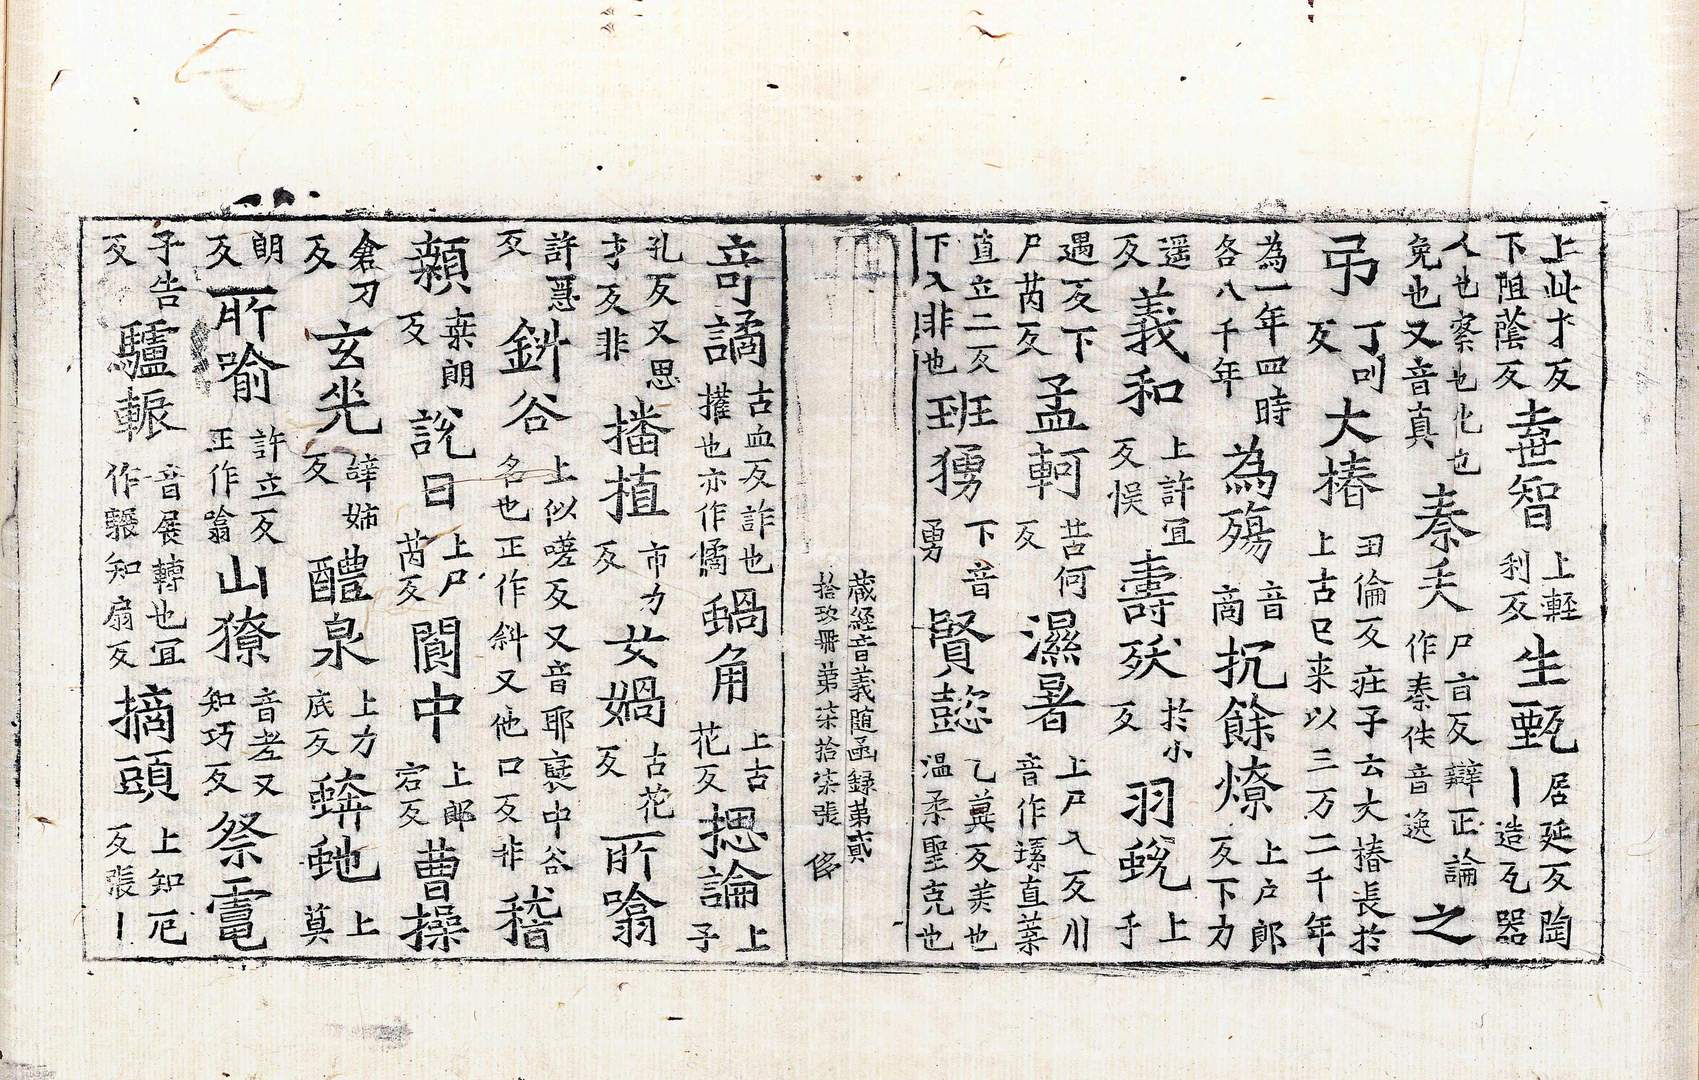 上此才反下阻蔭反壴智上輕利反生甄居延反陶丨造瓦器
人也察也化也免也又音真秦夭尸亩反辯正論作秦佚音逸之
弔丁叫反大椿丑倫反庄子云大椿長於上古已来以三万二千年
為一年四時各八千年為殤音商抗餘燎上户郎反下力
遥反義和上許冝反悮壽殀於小反羽蛻上乎
遇反下尸芮反孟軻苦何反濕暑上尸入反川音作直葉
直立二反下入非也班勇下音勇賢懿乙冀反美也温柔聖克也
蔵經音義随函録第貳拾玖冊第柒拾柒張侈
奇譎古血反詐也攉也亦作憰蝸角上古花反揌論上子
孔反又思才反非播植市力反女媧古花反所噏
許急反斜谷上似嗟反又音耶褒中谷名也正作斜又他口反非稽
顙桒朗反說日上尸芮反閬中上郎宕反曹操
倉刀反玄光譁姉反醴泉上力底反蜯虵上莫
朗反所喻許立反正作噏山獠音老又知巧反祭竈
子告反驢輾音展轉也冝作知扇反摘頭上知厄反張丨